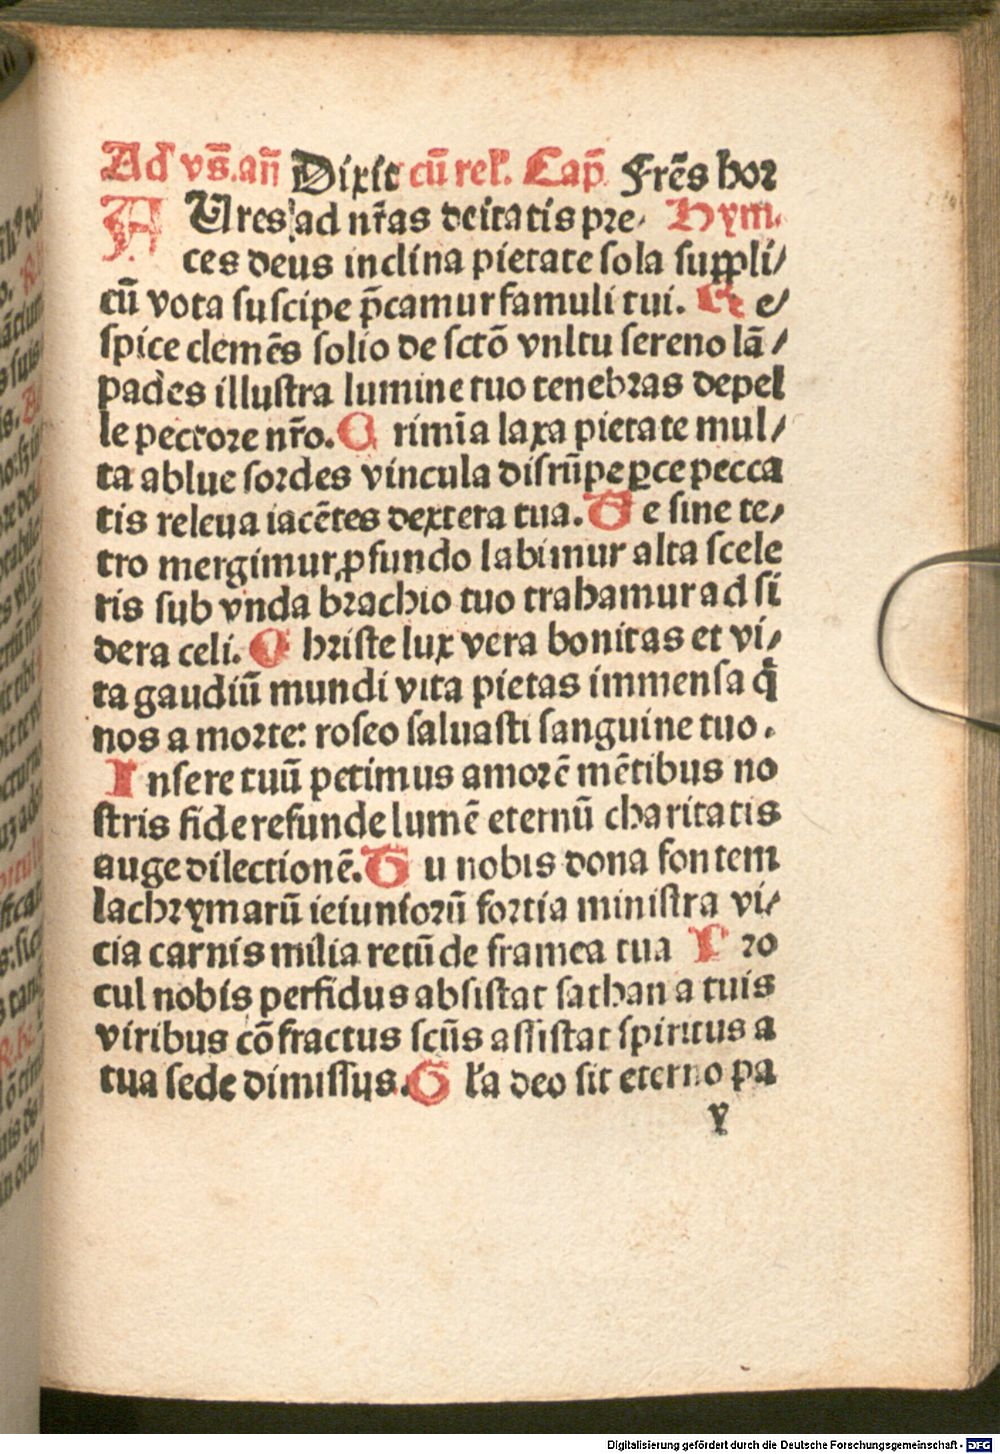 Ad vs̄.an̄ Dixit cū rel'. Cap̄. Frēs hor
A Ures ad nr̄as deitatis pre⸗ Hym.
ces deus inclina pietate sola suppli⸗
cū vota suscipe p̄camur famuli tui. Re⸗
spice clemēs solio de sctō vultu sereno lā⸗
pades illustra lumine tuo tenebras depel
le pectore nr̄o. Crimīa laxa pietate mul⸗
ta ablue sordes vincula disrūpe ꝑce pecca
tis releua iacētes dextera tua. Te sine te⸗
tro mergimur, ꝓfundo labimur alta scele
ris sub vnda brachio tuo trahamur ad si
dera celi. Christe lux vera bonitas et vi⸗
ta gaudiū mundi vita pietas immensa q̄
nos a morte: roseo saluasti sanguine tuo.
Insere tuū petimus amorē mētibus no
stris fide refunde lumē eternū charitatis
auge dilectionē. Tu nobis dona fontem
lachrymarū ieiuniorū fortia ministra vi⸗
cia carnis milia retūde framea tua Pro
cul nobis perfidus absistat sathan a tuis
viribus cōfractus scūs assistat spiritus a
tua sede dimissus. Gl'a deo sit eterno pa
v
Digitalisierung gefördert durch die Deutsche Forschungsgemeinschaft - DFG